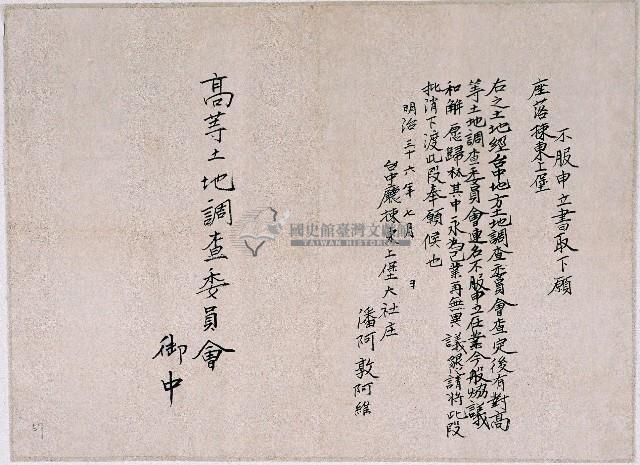 不服申立書取下願
座落揀東上堡
右之土地經台中地方土地調查委員會查定後有對高
等土地調查委員會連名不服申立在業今般協議
和解愿歸於其中永為己業再無異議銀請將此段
批消下渡此段奉願候也
明治三十六年七月 日
台中廳揀東上堡大社庄
潘阿敦阿維
高等土地調查委員會
御中
國史館臺灣文獻館
TAIWAN HISTORICA
57